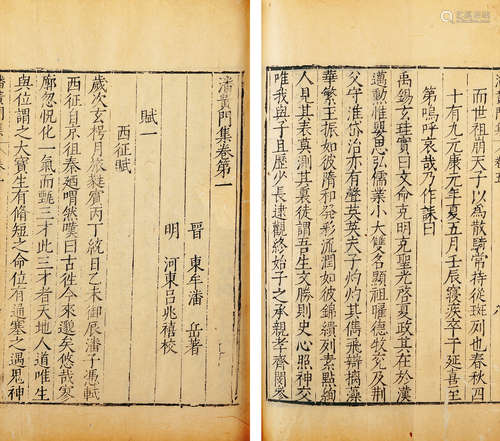 而世祖崩天子以為散騎常侍從班列也春秋四
十有九元康元年夏五月壬辰寢疾卒于延喜里
第嗚呼哀哉乃作誄曰
禹錫玄珪實曰文命克明克聖光啓夏政其在於漢
邁勳惟嬰思弘儒業小大雙名顯祖曜德牧兖及荆
父守淮岱治亦有聲英英夫子灼灼其儁飛辯摛藻
華繁玉振如彼隋和發彩流潤如彼錦繢列素點絢
人見其表莫測其裏徒謂吾生文勝則史心照神交
唯我與子且歷少長逮觀終始子之承親孝齊閔參
潘黃門集卷第一
晉 東牟潘 岳著
明 河東呂兆禧校
賦一
西征賦
歲次玄枵月旅蕤賓丙丁統日乙未御辰潘子憑軾
西征自京徂秦廼喟然嘆曰古往今來邈矣悠哉寥
廓忽怳化一氣而甄三才此三才者天地人道唯生
與位謂之大寶生有脩短之命位有通塞之遇鬼神